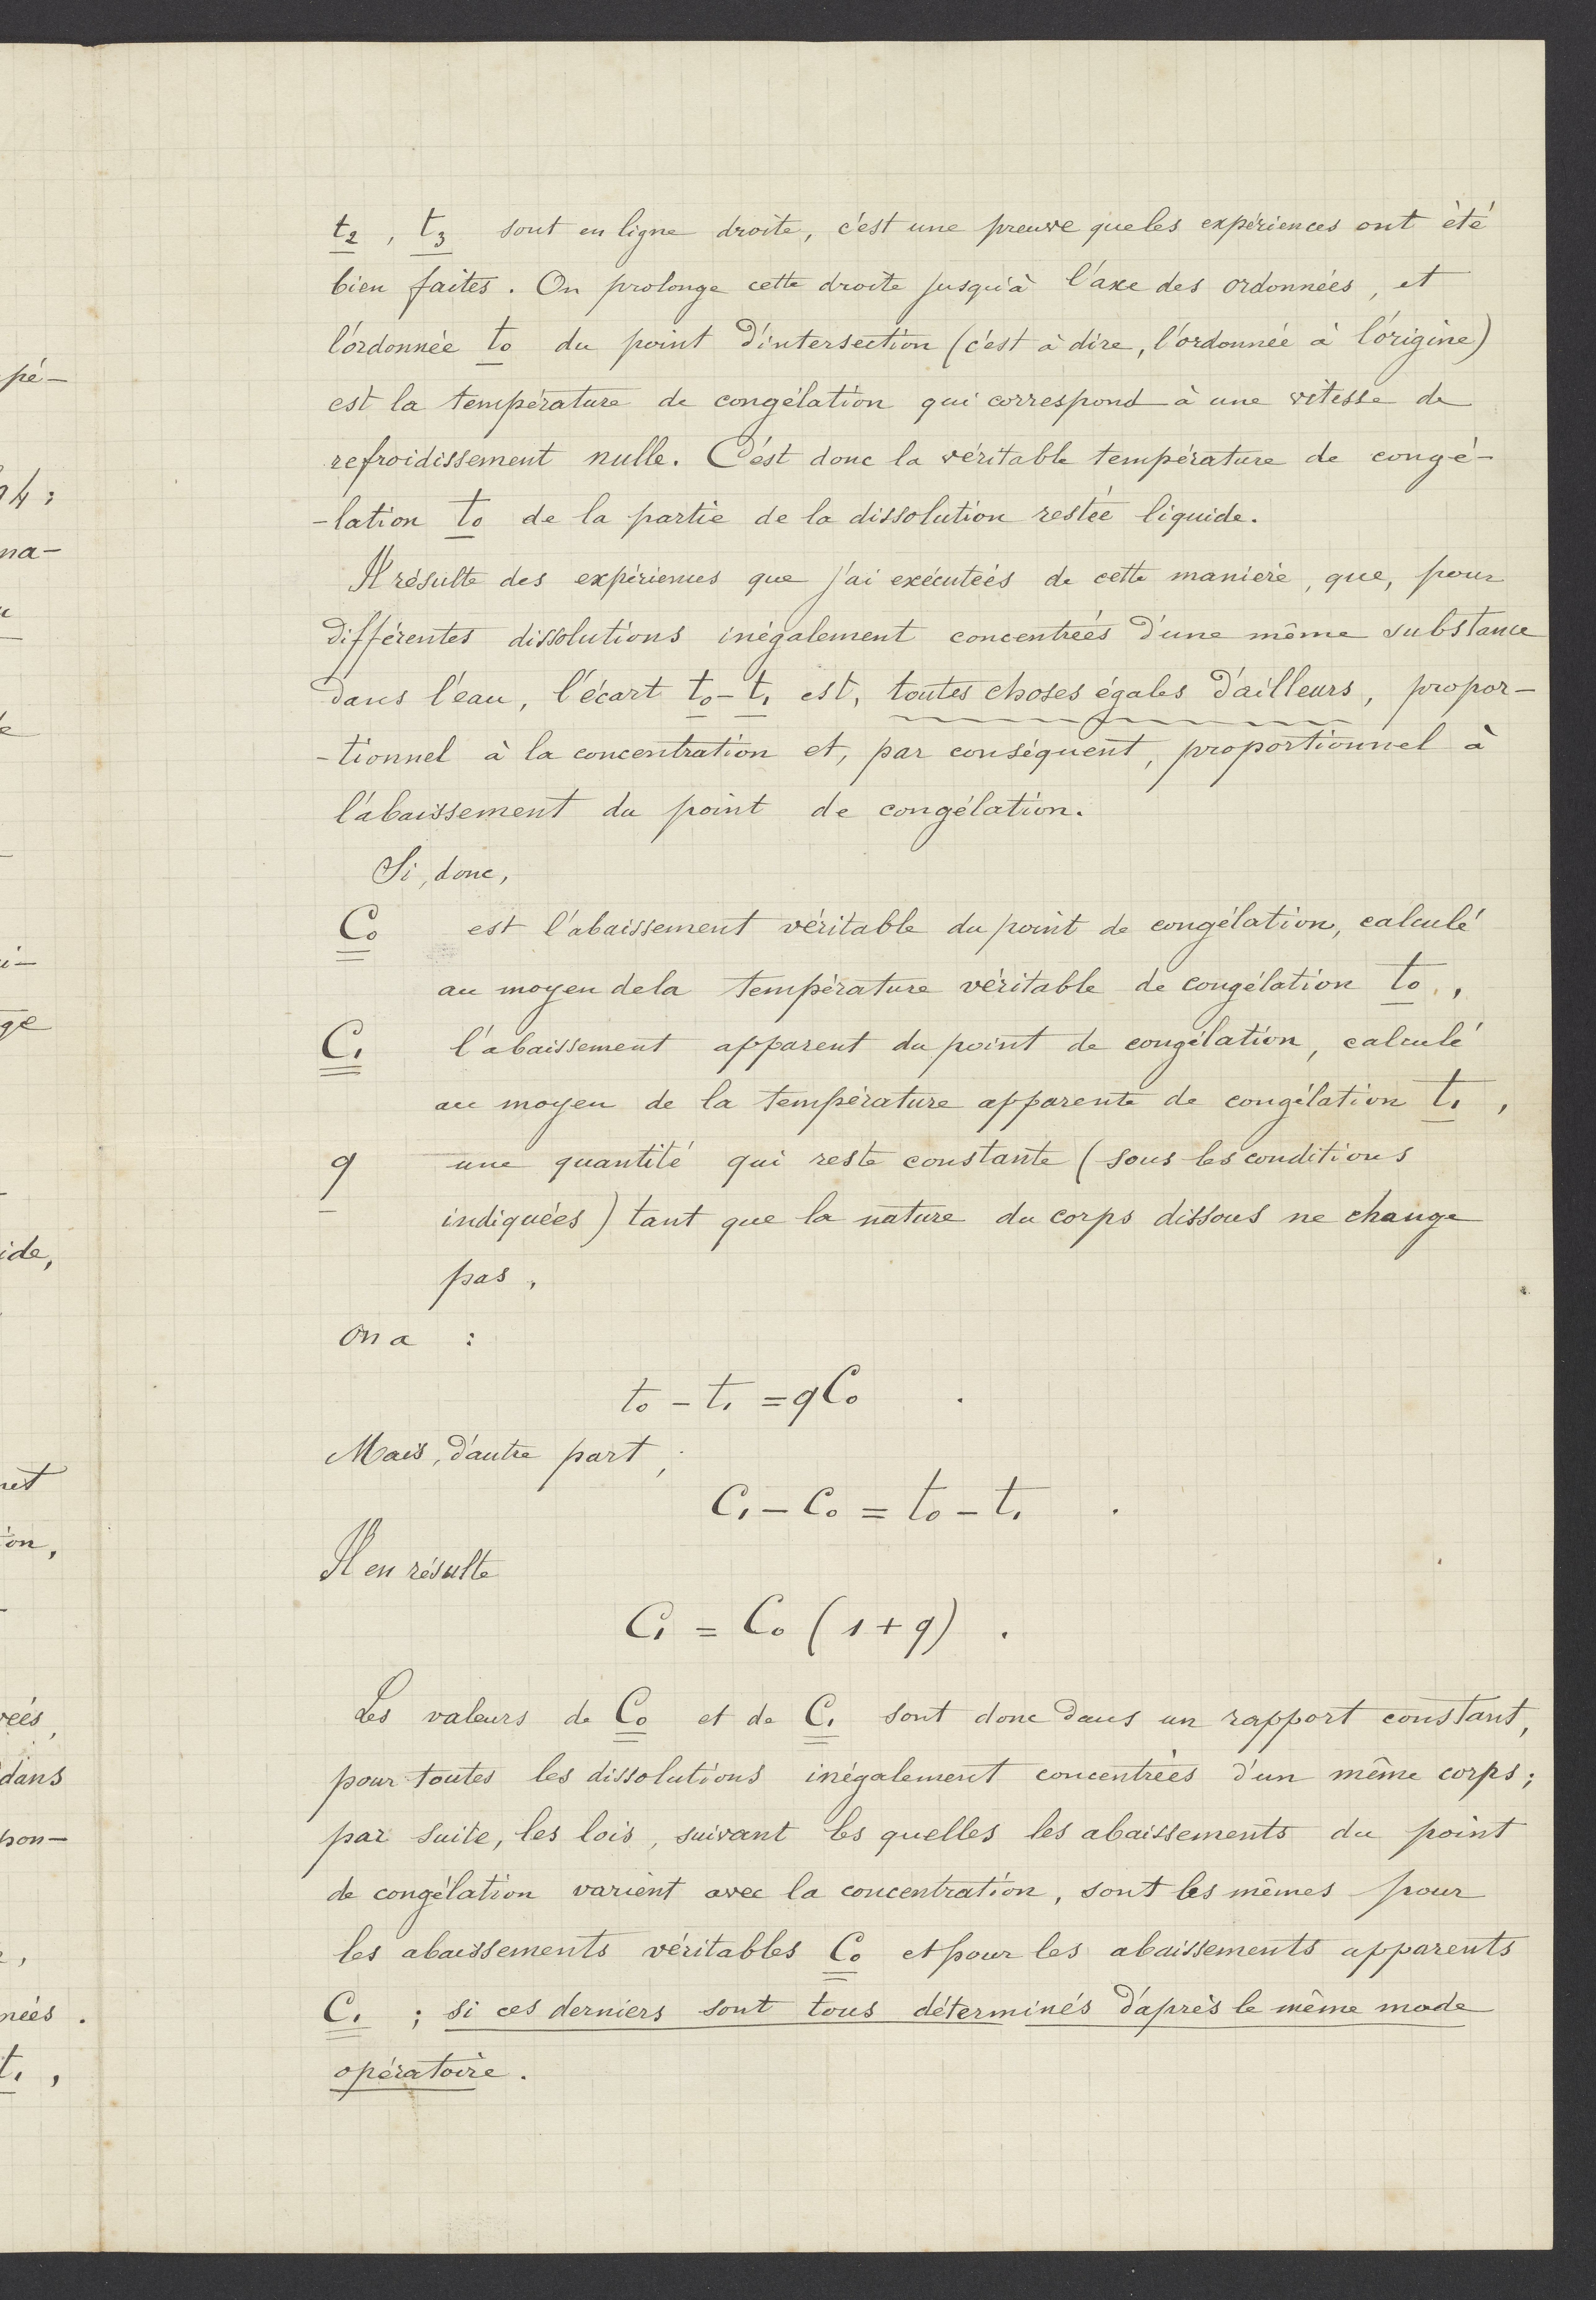 t₂, t₃ sont en ligne droite, c'est une preuve que les expériences ont été
bien faites. On prolonge cette droite jusqu'à l'axe des ordonnées, et
l'ordonnée t₀ du point d'intersection (c'est à dire, l'ordonnée à l'origine)
est la température de congélation qui correspond à une vitesse de
refroidissement nulle. C'est donc la véritable température de congé-
-lation t₀ de la partie de la dissolution restée liquide.
Il résulte des expériences que j'ai exécutées de cette manière, que, pour
différentes dissolutions inégalement concentrées d'une même substance
dans l'eau, l'écart t₀-t₁ est, toutes choses égales d'ailleurs, propor-
-tionnel à la concentration et, par conséquent, proportionnel à
l'abaissement du point de congélation.
Si, donc,
C₀ est l'abaissement véritable du point de congélation, calculé
au moyen de la température véritable de congélation t₀,
C₁ l'abaissement apparent du point de congélation, calculé
au moyen de la température apparente de congélation t₁,
q une quantité qui reste constante (sous les conditions
indiquées) tant que la nature du corps dissous ne change
pas,
on a :
t₀ - t₁ = qC₀ .
Mais, d'autre part,
C₁ - C₀ = t₀ - t₁ .
Il en résulte
C₁ = C₀ (1+q) .
Les valeurs de C₀ et de C₁ sont donc dans un rapport constant,
pour toutes les dissolutions inégalement concentrées d'un même corps;
par suite, les lois, suivant les quelles les abaissements du point
de congélation varient avec la concentration, sont les mêmes pour
les abaissements véritables C₀ et pour les abaissements apparents
C₁ ; si ces derniers sont tous déterminés d'après le même mode
opératoire.